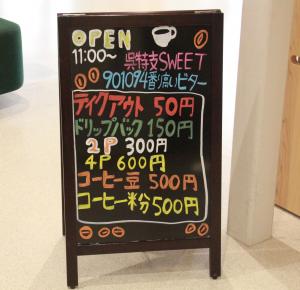 OPEN
11:00～ 呉特支SWEET
901094香り高いビター
テイクアウト 50円
ドリップバック 150円
2P 300円
4P 600円
コーヒー豆 500円
コーヒー粉 500円